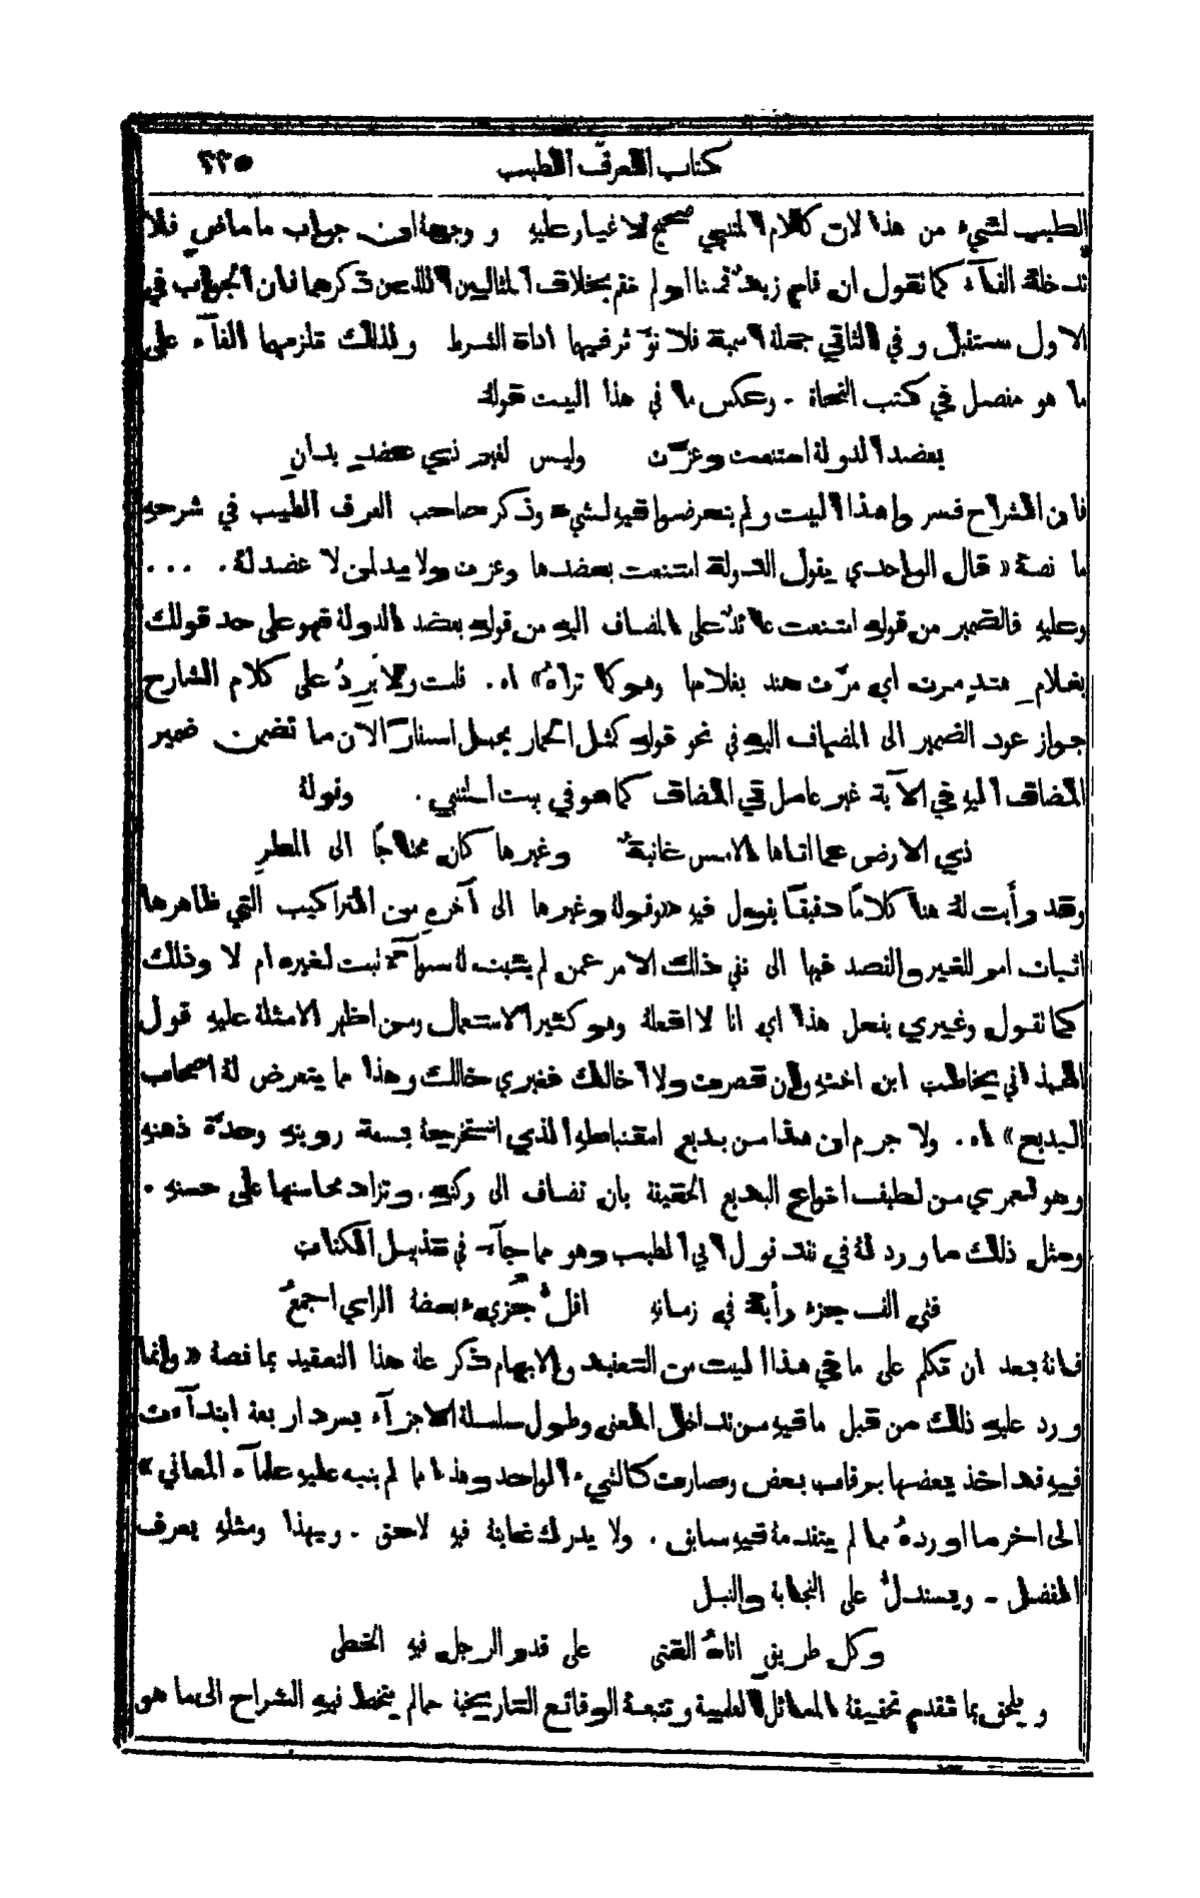 كتاب العرف الطيب ٢٢٥
الطيب لشيء من هذا لان كلام المتنبي صحيح لا غبار عليه ووجهه ان جواب ما ماض فلا
تدخله الفآء كما تقول ان قام زيد قمنا او لم نقم بخلاف المثالين اللذين ذكرهما فان الجواب في
الاول مستقبل وفي الثاني جملة اسمية فلا تؤثر فيها اداة الشرط ولذلك تلزمهما الفآء على
ما هو مفصل في كتب النحاة . وعكس ما في هذا البيت قولهُ
بعضد الدولة امتنعت وعزّت وليس لغير ذي عضدٍ يدانِ
فان الشراح فسروا هذا البيت ولم يتعرضوا فيه لشيء وذكر صاحب العرف الطيب في شرحهِ
ما نصهُ « قال الواحدي يقول الدولة امتنعت بعضدها وعزت ولا يد لمن لا عضد لهُ . ...
وعليهِ فالضمير من قوله امتنعت عائدٌ على المضاف اليه من قوله بعضد الدولة فهو على حد قولك
بغلامِ هندٍ مرت اي مرّت هند بغلامها وهو كما تراهُ » اه . قلت ولا يَرِدُ على كلام الشارح
جواز عود الضمير الى المضاف اليه في نحو قوله كمثل الحمار يحمل اسفارًا لان ما تضمن ضمير
المضاف اليه في الآية غير عامل في المضاف كما هو في بيت المتنبي . وقولهُ
ذي الارض عما اتاها الامس غانيةٌ وغيرها كان محتاجًا الى المطرِ
وقد رأيت لهُ هنا كلامًا دقيقًا يقول فيه « وقولهُ وغيرها الى آخرهِ من التراكيب التي ظاهرها
اثبات امر للغير والقصد فيها الى نفي ذلك الامر عمن لم يثبت لهُ سوآءٌ ثبت لغيره ام لا وذلك
كما تقول وغيري يفعل هذا اي انا لا افعلهُ وهو كثير الاستعمال ومن اظهر الامثلة عليهِ قول
الهمذاني يخاطب ابن اختهِ وان قصرت ولا اخالك فغيري خالك وهذا ما يتعرض لهُ اصحاب
البديع » اه . ولا جرم ان هذا من بديع استنباطهِ الذي استخرجهُ بسعة رويتهِ وحدّة ذهنهِ
وهو لعمري من لطيف انواع البديع الحقيقة بان تضاف الى ركنهِ . وتزاد محاسنها على حسنهِ .
ومثل ذلك ما ورد لهُ في نقد قول ابي الطيب وهو مما جآء في تذييل الكتاب
فتى الف جزء رأيهُ في زمانهِ اقلُّ جُزَيءٍ بعضهُ الراي اجمعُ
فانهُ بعد ان تكلم على ما في هذا البيت من التعقيد والابهام ذكر علة هذا التعقيد بما نصهُ « وانما
ورد عليه ذلك من قبل ما فيه من تداخل المعنى وطول سلسلة الاجزآء بسرد اربعة ابتدآءت
فيهِ قد اخذ بعضها برقاب بعض وصارت كالشيء الواحد وهذا مما لم ينبه عليهِ علمآء المعاني »
الى اخر ما اوردهُ مما لم يتقدمهُ فيه سابق . ولا يدرك غايتهُ فيهِ لاحق . وبهذا ومثلهِ يعرف
الفضل . ويستدلُّ على النجابة والنبل
وكل طريقٍ اتاهُ الفتى على قدر الرجل فيهِ الخطى
ويلحق بما تقدم تحقيقهُ المسائل العلمية وتتبعهُ الوقائع التاريخية مما لم يتخط فيهِ الشراح الى ما هو